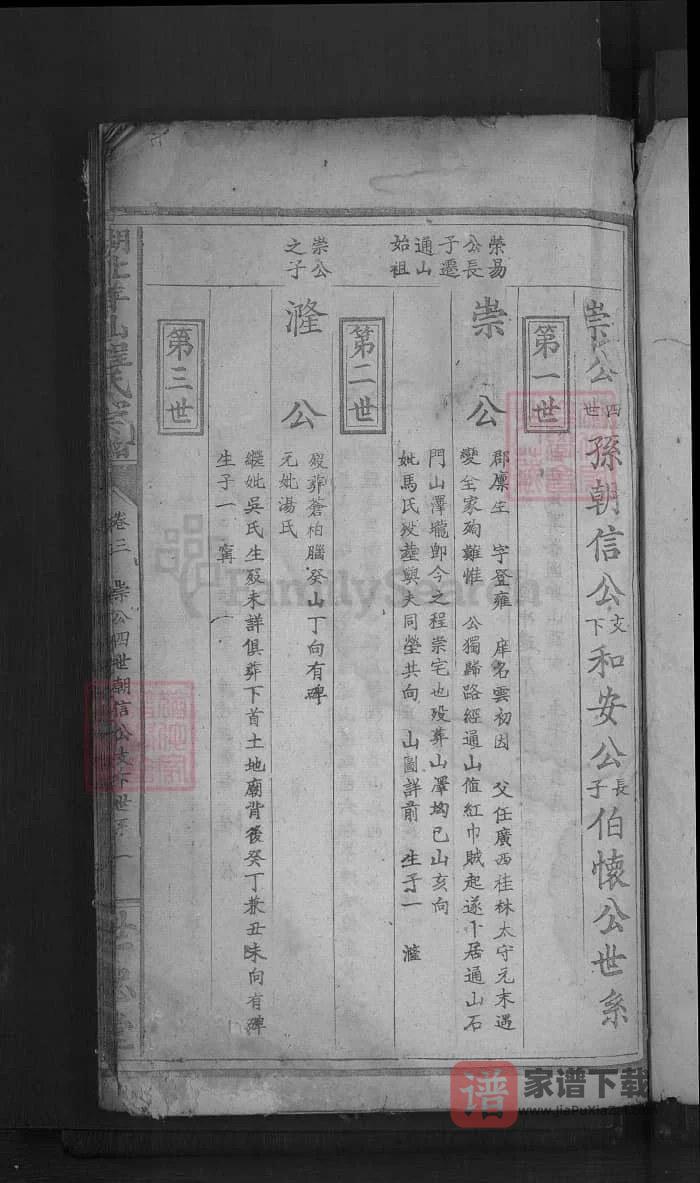 崇公四世孫朝信公支下和安公長子伯懷公世系
第一世
榮易公長子遷通山始祖
崇公
郡廩生 字登雍 庠名雲初因 父任廣西桂林太守元末遇
變全家殉難惟 公獨歸路經通山值紅巾賊起遂卜居通山石
門山澤壠即今之程崇宅也歿葬山澤坳巳山亥向
妣馬氏歿葬與夫同塋共向 山圖詳前 生子一 漋
第二世
崇公之子
漋公
歿葬蒼柏腦癸山丁向有碑
元妣湯氏
繼妣吳氏生歿未詳俱葬下首土地廟背後癸丁兼丑未向有碑
生子一 寗
第三世
卷三 崇公四世朝信公支下世系 一
FamilySearch
谱
家谱下载
www.JiaPuXiaZ